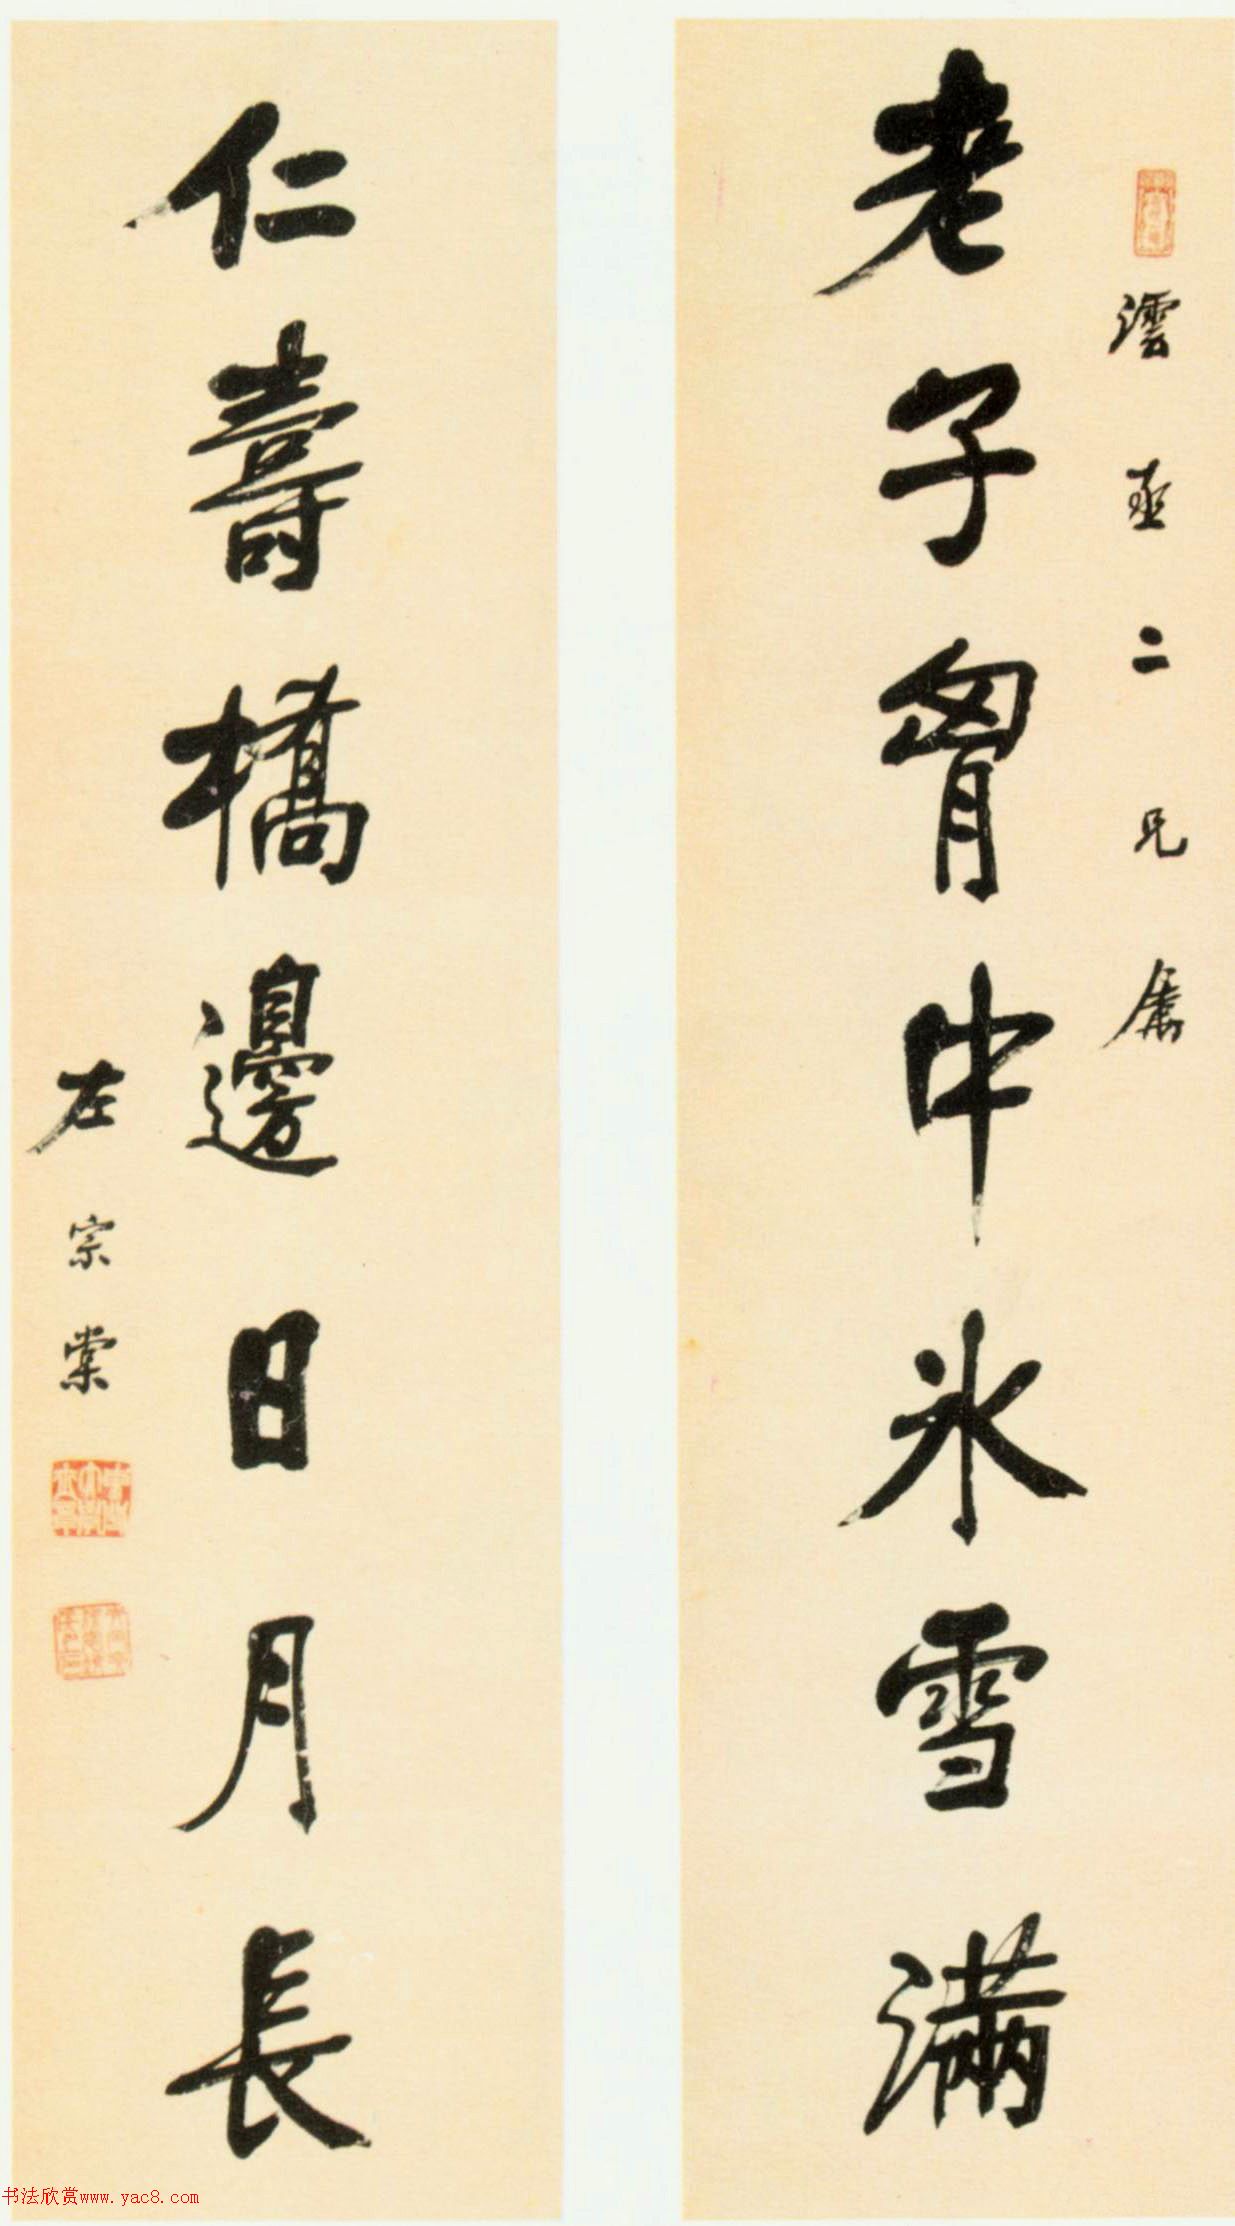 澐二兄属
老子胷中氷雪滿
仁壽橋邊日月長
左宗棠
书法欣赏www.yac8.com